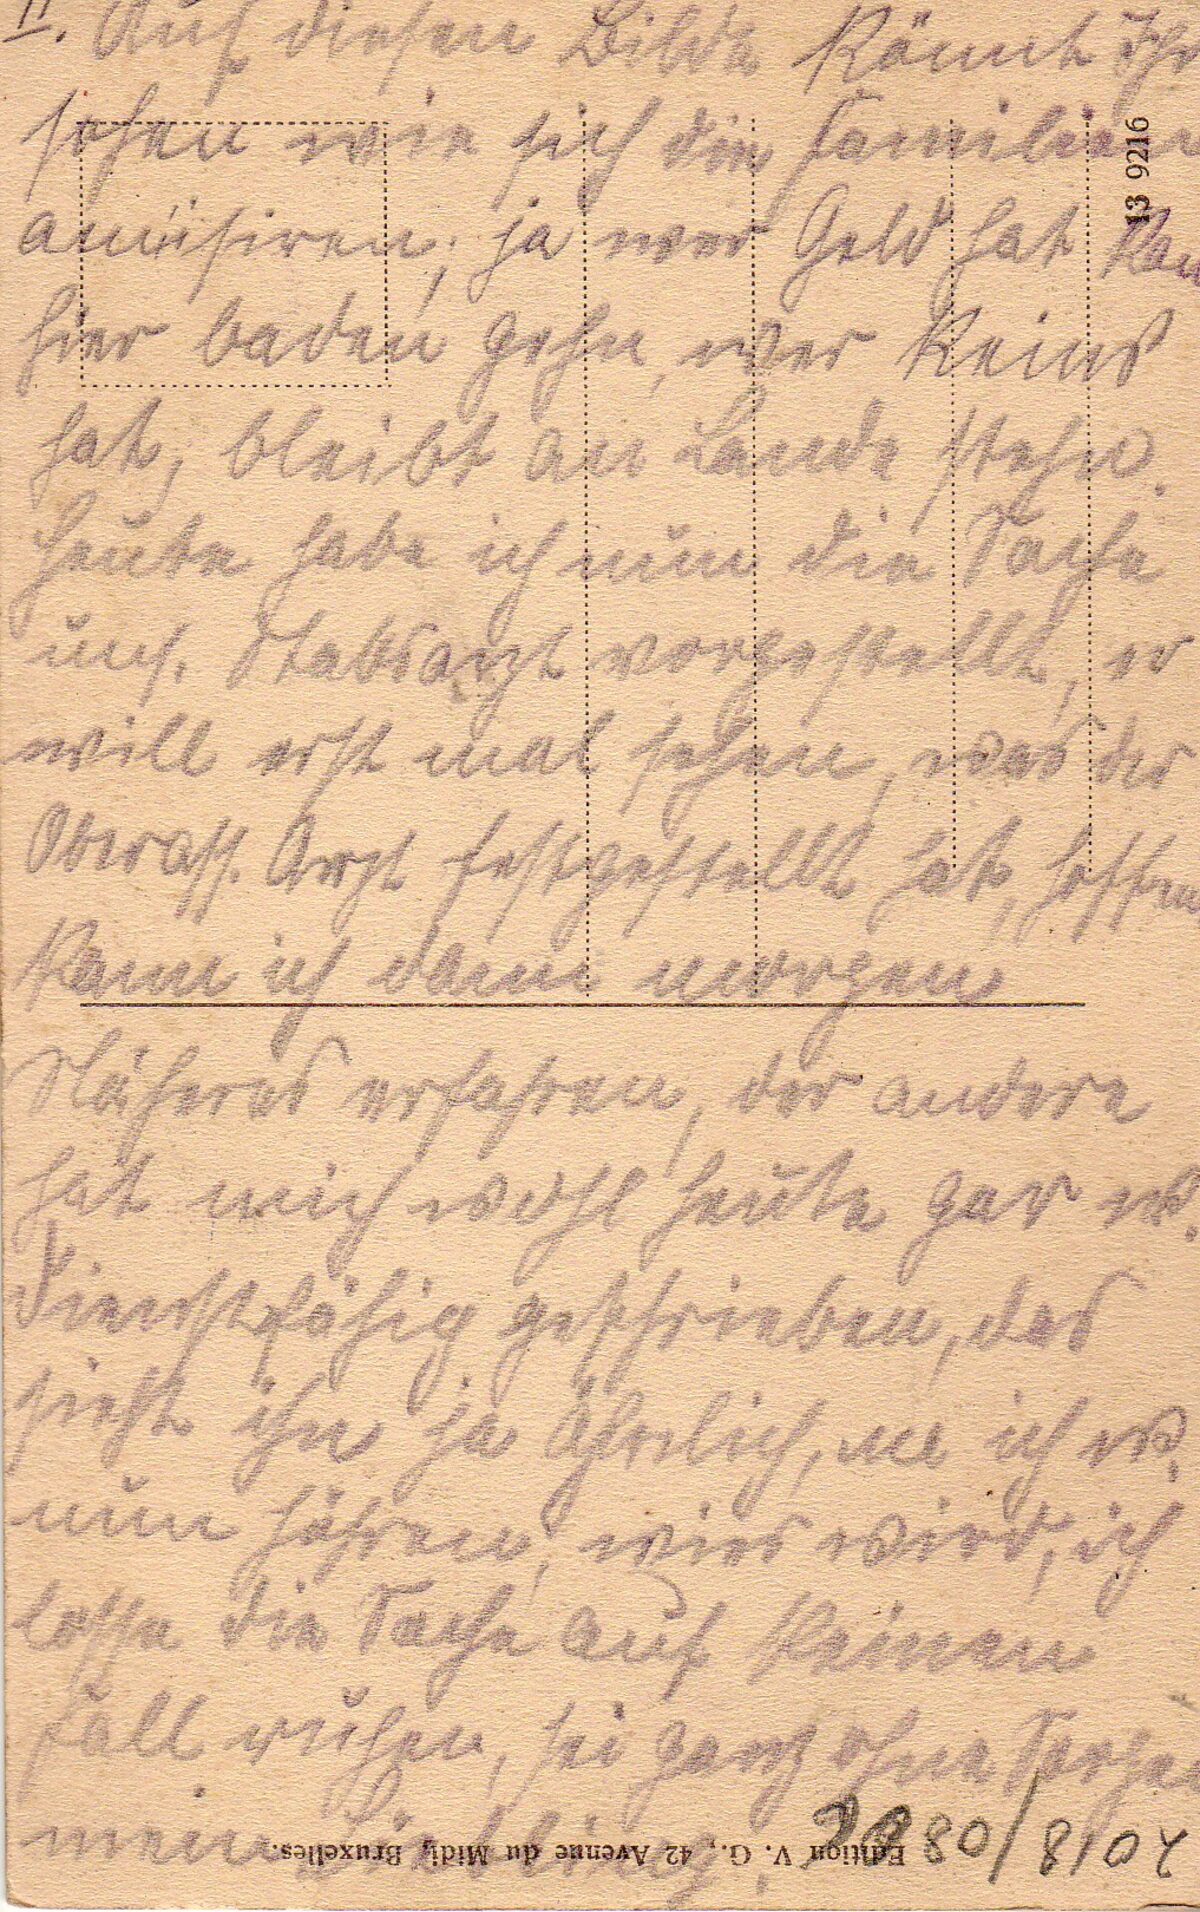 II. Auf diesen Bilde könnt Ihr
sehen wie sich die Familien
amüsiren, ja wer Geld hat kan
hier baden gehn, wer keins
hat, bleibt an Lande stehn.
Heute habe ich nun die Sache
uns. Stabsarzt vorgestellt, er
will erst mal sehen, was der
Oberass. Arzt festgestellt hat,
kann ich dann morgen
Näheres erfahren, der andere
hat mich wohl heute gar
Dienstfähig geschrieben, das
sieht ihn ja ähnlich, ich
nun hören, wies wird, ich
lasse die Sache auf keinen
Fall ruhen, sei ganz ohne Sorge
mein Liebling.
13 9216
Edition V. G., 42 Avenue du Midi, Bruxelles.